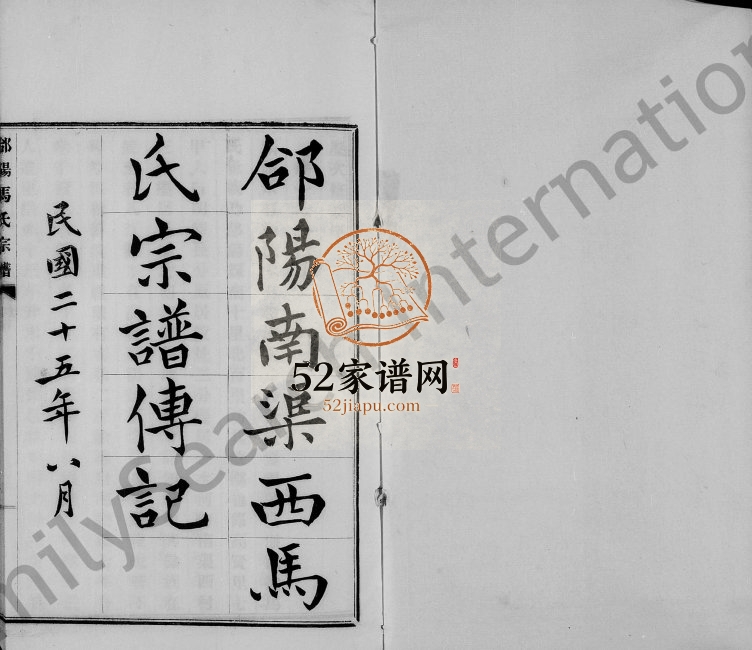 郃陽南渠西馬
氏宗譜傳記
民國二十五年八月
郃陽馬氏宗譜
52家谱网
52jiapu.com
milySearch International